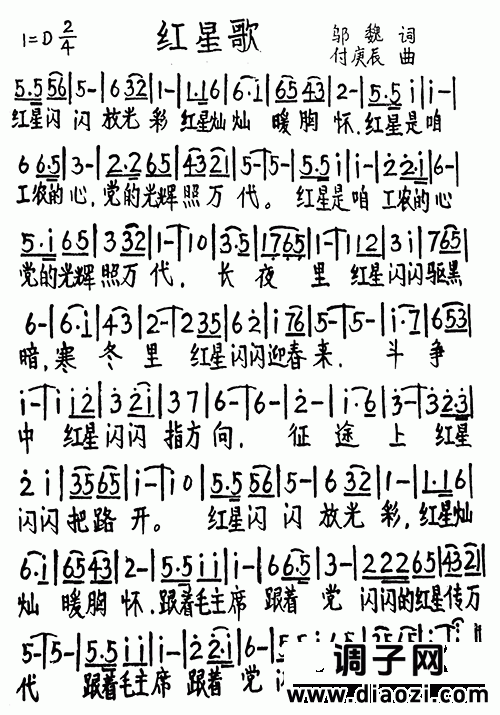 1=D 2/4 红星歌 邬魏 词
付庚辰 曲
5·5 56|5-|6 32|1-|1·1 6|6·i|65 43|2-|5·5 i|i-|
红星闪 闪 放光 彩 红星灿灿 暖胸 怀,红星是咱
6 6·5|3-|2·2 65|43 21|5-|5-|5·5 i|i-|2·2 i|6-|
工农的心,党的光辉照万 代。红星是咱 工农的心
5·i 65|3 32|1-|1 0|3·5|1765|1-|1 12|3 i|7 65|
党的光辉照万 代, 长 夜 里 红星闪闪驱黑
6-|6·i|4 3|2-|2 35|6 2|i 76|5-|5-|i·7|6 53|
暗,寒 冬 里 红星闪闪迎春来, 斗 争
i-|i i2|3 2i|3 7|6-|6-|2-|i·6|3-|3 23|
中 红星闪闪 指方向, 征 途 上 红星
2 i|35 65|i-|i 0|5·5 56|5-|6 32|1-|1·1 6|
闪闪把路 开。 红星闪 闪 放光 彩,红星灿
6·i|65 43|2-|5·5 i i|i-|6 65|3-|222 65|43 21|
灿 暖胸 怀,跟着毛主席 跟着 党 闪闪的红星传万
5-|5-|5·5 i i|i-|2·2 i|6-|5
代 跟着毛主席 跟着 党
调子网
www.diaozi.com